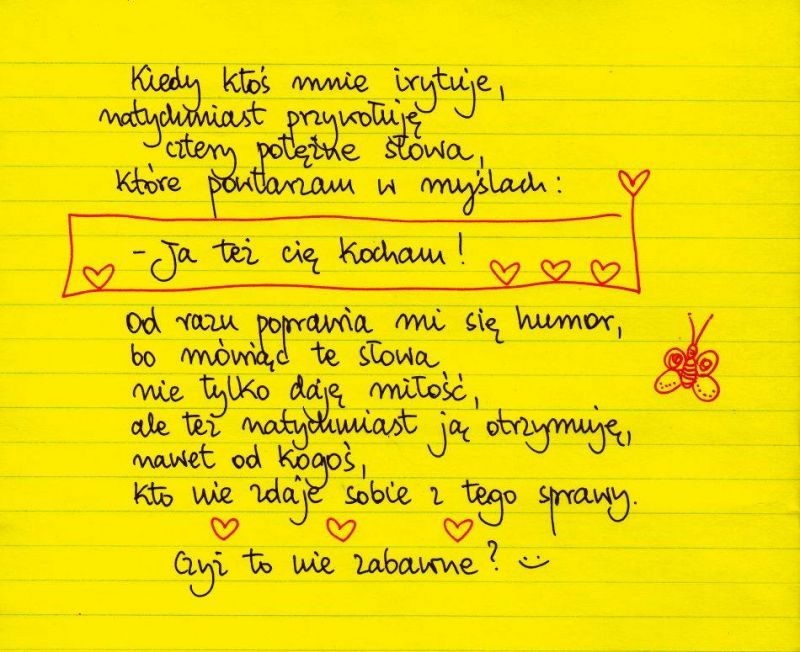 Kiedy ktoś mnie irytuje,
natychmiast przywołuję
cztery potężne słowa,
które powtarzam w myślach:
- Ja też cię kocham!
Od razu poprawia mi się humor,
bo mówiąc te słowa
nie tylko daję miłość,
ale też natychmiast ją otrzymuję,
nawet od kogoś,
kto nie zdaje sobie z tego sprawy.
Czyż to nie zabawne? :)